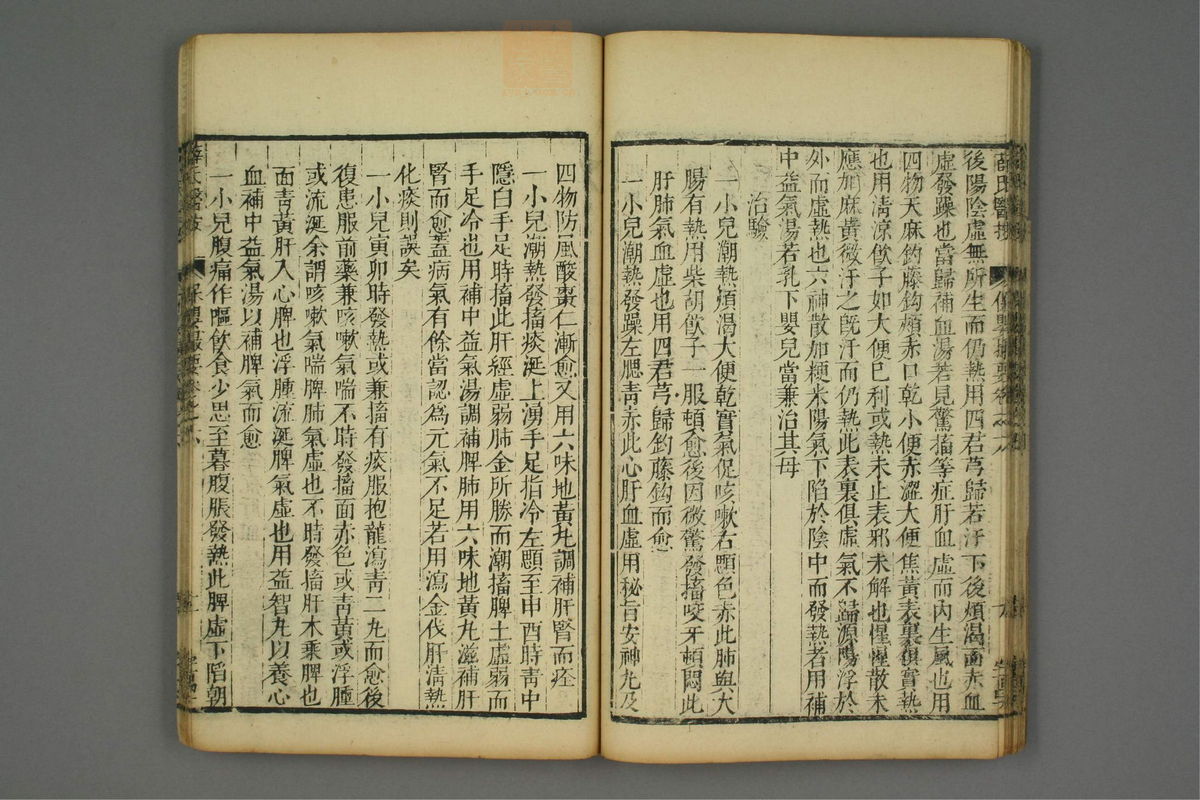 薛氏醫按
保嬰撮要卷之六
後陽陰虛無所生而仍熱用四君芎歸若汗下後煩渴面赤血
虛發躁也當歸補血湯若見驚搐等症肝血虛而內生風也用
四物天麻鈎藤鈎頰赤口乾小便赤澀大便焦黃表裏俱實熱
也用清凉飲子如大便已利或熱未止表邪未解也惺惺散未
應加麻黃微汗之既汗而仍熱此表裏俱虛氣不歸源陽浮於
外而虛熱也六神散加粳米陽氣下陷於陰中而發熱者用補
中益氣湯若乳下嬰兒當兼治其母
治驗
一小兒潮熱煩渴大便乾實氣促咳嗽右顋色赤此肺與大
腸有熱用柴胡飲子一服頓愈後因微驚發搐咬牙頓悶此
肝肺氣血虛也用四君芎歸鈎藤鈎而愈
一小兒潮熱發躁左腮青赤此心肝血虛用秘旨安神丸及
四物防風酸棗仁漸愈又用六味地黃丸調補肝腎而痊
一小兒潮熱發搐痰涎上湧手足指冷左顋至申酉時青中
隱白手足時搐此肝經虛弱肺金所勝而潮搐脾土虛弱而
手足冷也用補中益氣湯調補脾肺用六味地黃丸滋補肝
腎而愈蓋病氣有餘當認爲元氣不足若用瀉金伐肝清熱
化痰則誤矣
一小兒寅卯時發熱或兼搐有痰服抱龍瀉青二丸而愈後
復患服前藥兼咳嗽氣喘不時發搐面赤色或青黃或浮腫
或流涎余謂咳嗽氣喘脾肺氣虛也不時發搐肝木乘脾也
面青黃肝入心脾也浮腫流涎脾氣虛也用益智丸以養心
血補中益氣湯以補脾氣而愈
一小兒腹痛作嘔飲食少思至暮腹脹發熱此脾虛下陷朝
薛氏醫按
保嬰撮要卷之六